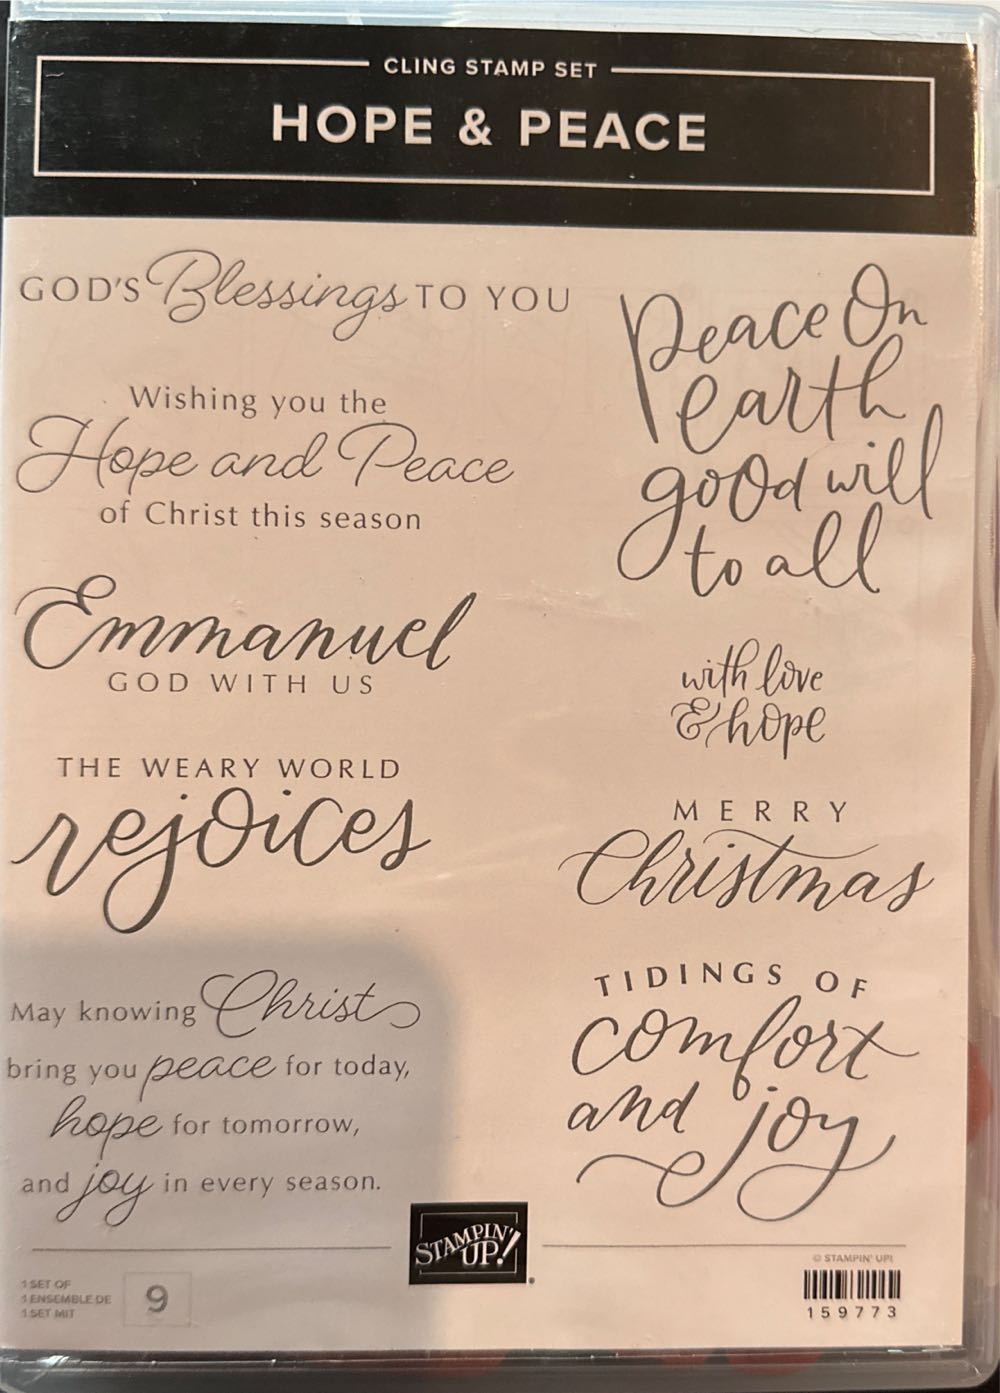 CLING STAMP SET
HOPE & PEACE
GOD'S Blessings TO YOU
Wishing you the
Hope and Peace
of Christ this season
Emmanuel
GOD WITH US
THE WEARY WORLD
rejoices
May knowing Christ
bring you peace for today,
hope for tomorrow,
and joy in every season.
Peace On
earth
good will
to all
with love
& hope
MERRY
Christmas
TIDINGS OF
comfort
and joy
STAMPIN'
UP!
1 SET OF
1 ENSEMBLE DE
1 SET MIT
9
© STAMPIN' UP!
159773